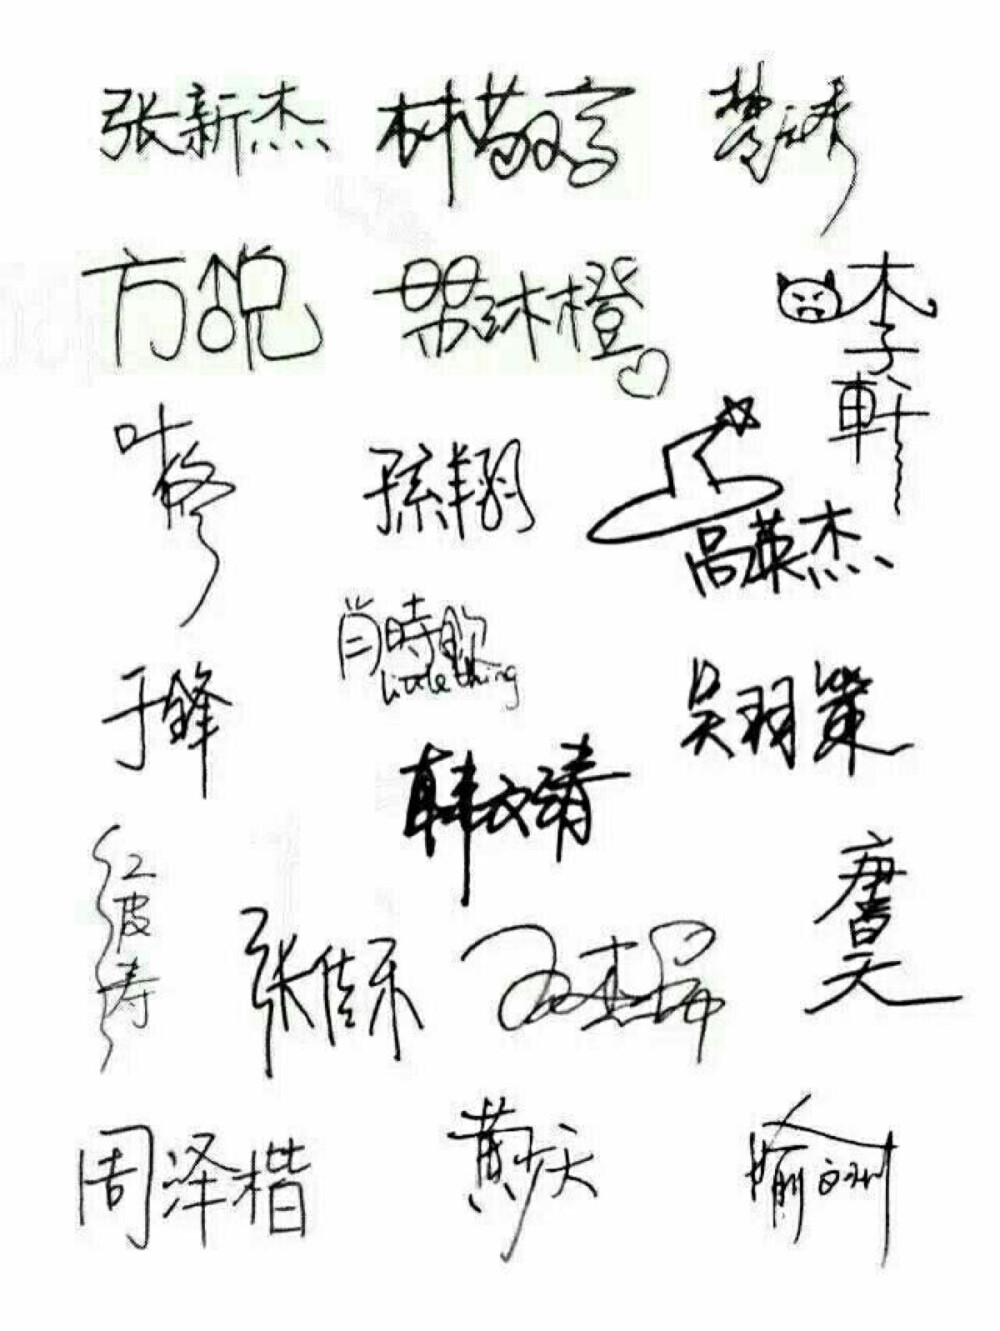 张新杰 林敬言 楚云秀
方锐 苏沐橙 李子軒
叶修 孙翔 高英杰
肖時钦
little thing
于锋 吴羽策
韩文清
江波涛 唐昊
张佳乐 王杰希
周泽楷 黄少天 喻文州